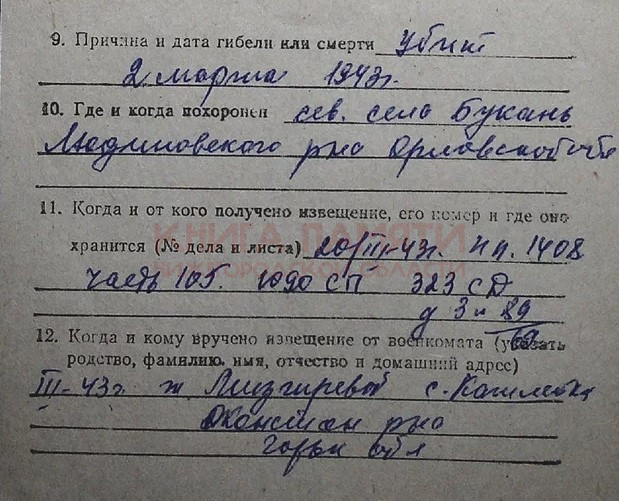 9. Причина и дата гибели или смерти убит
2 марта 1943г.
10. Где и когда похоронен сев. села Букань
Людиновского р-на Орловской обл
11. Когда и от кого получено извещение, его номер и где оно
КНИГА ПАМЯТИ
хранится (№ дела и листа) 20/III-43г. п. 1408
НИЖЕГОРОДСКОЙ ОБЛАСТИ
часть 105. 1090 СП 323 СД
д 3 89
12. Когда и кому вручено извещение от военкомата (указать
родство, фамилию, имя, отчество и домашний адрес)
III-43г ж
р-на
Горьк обл